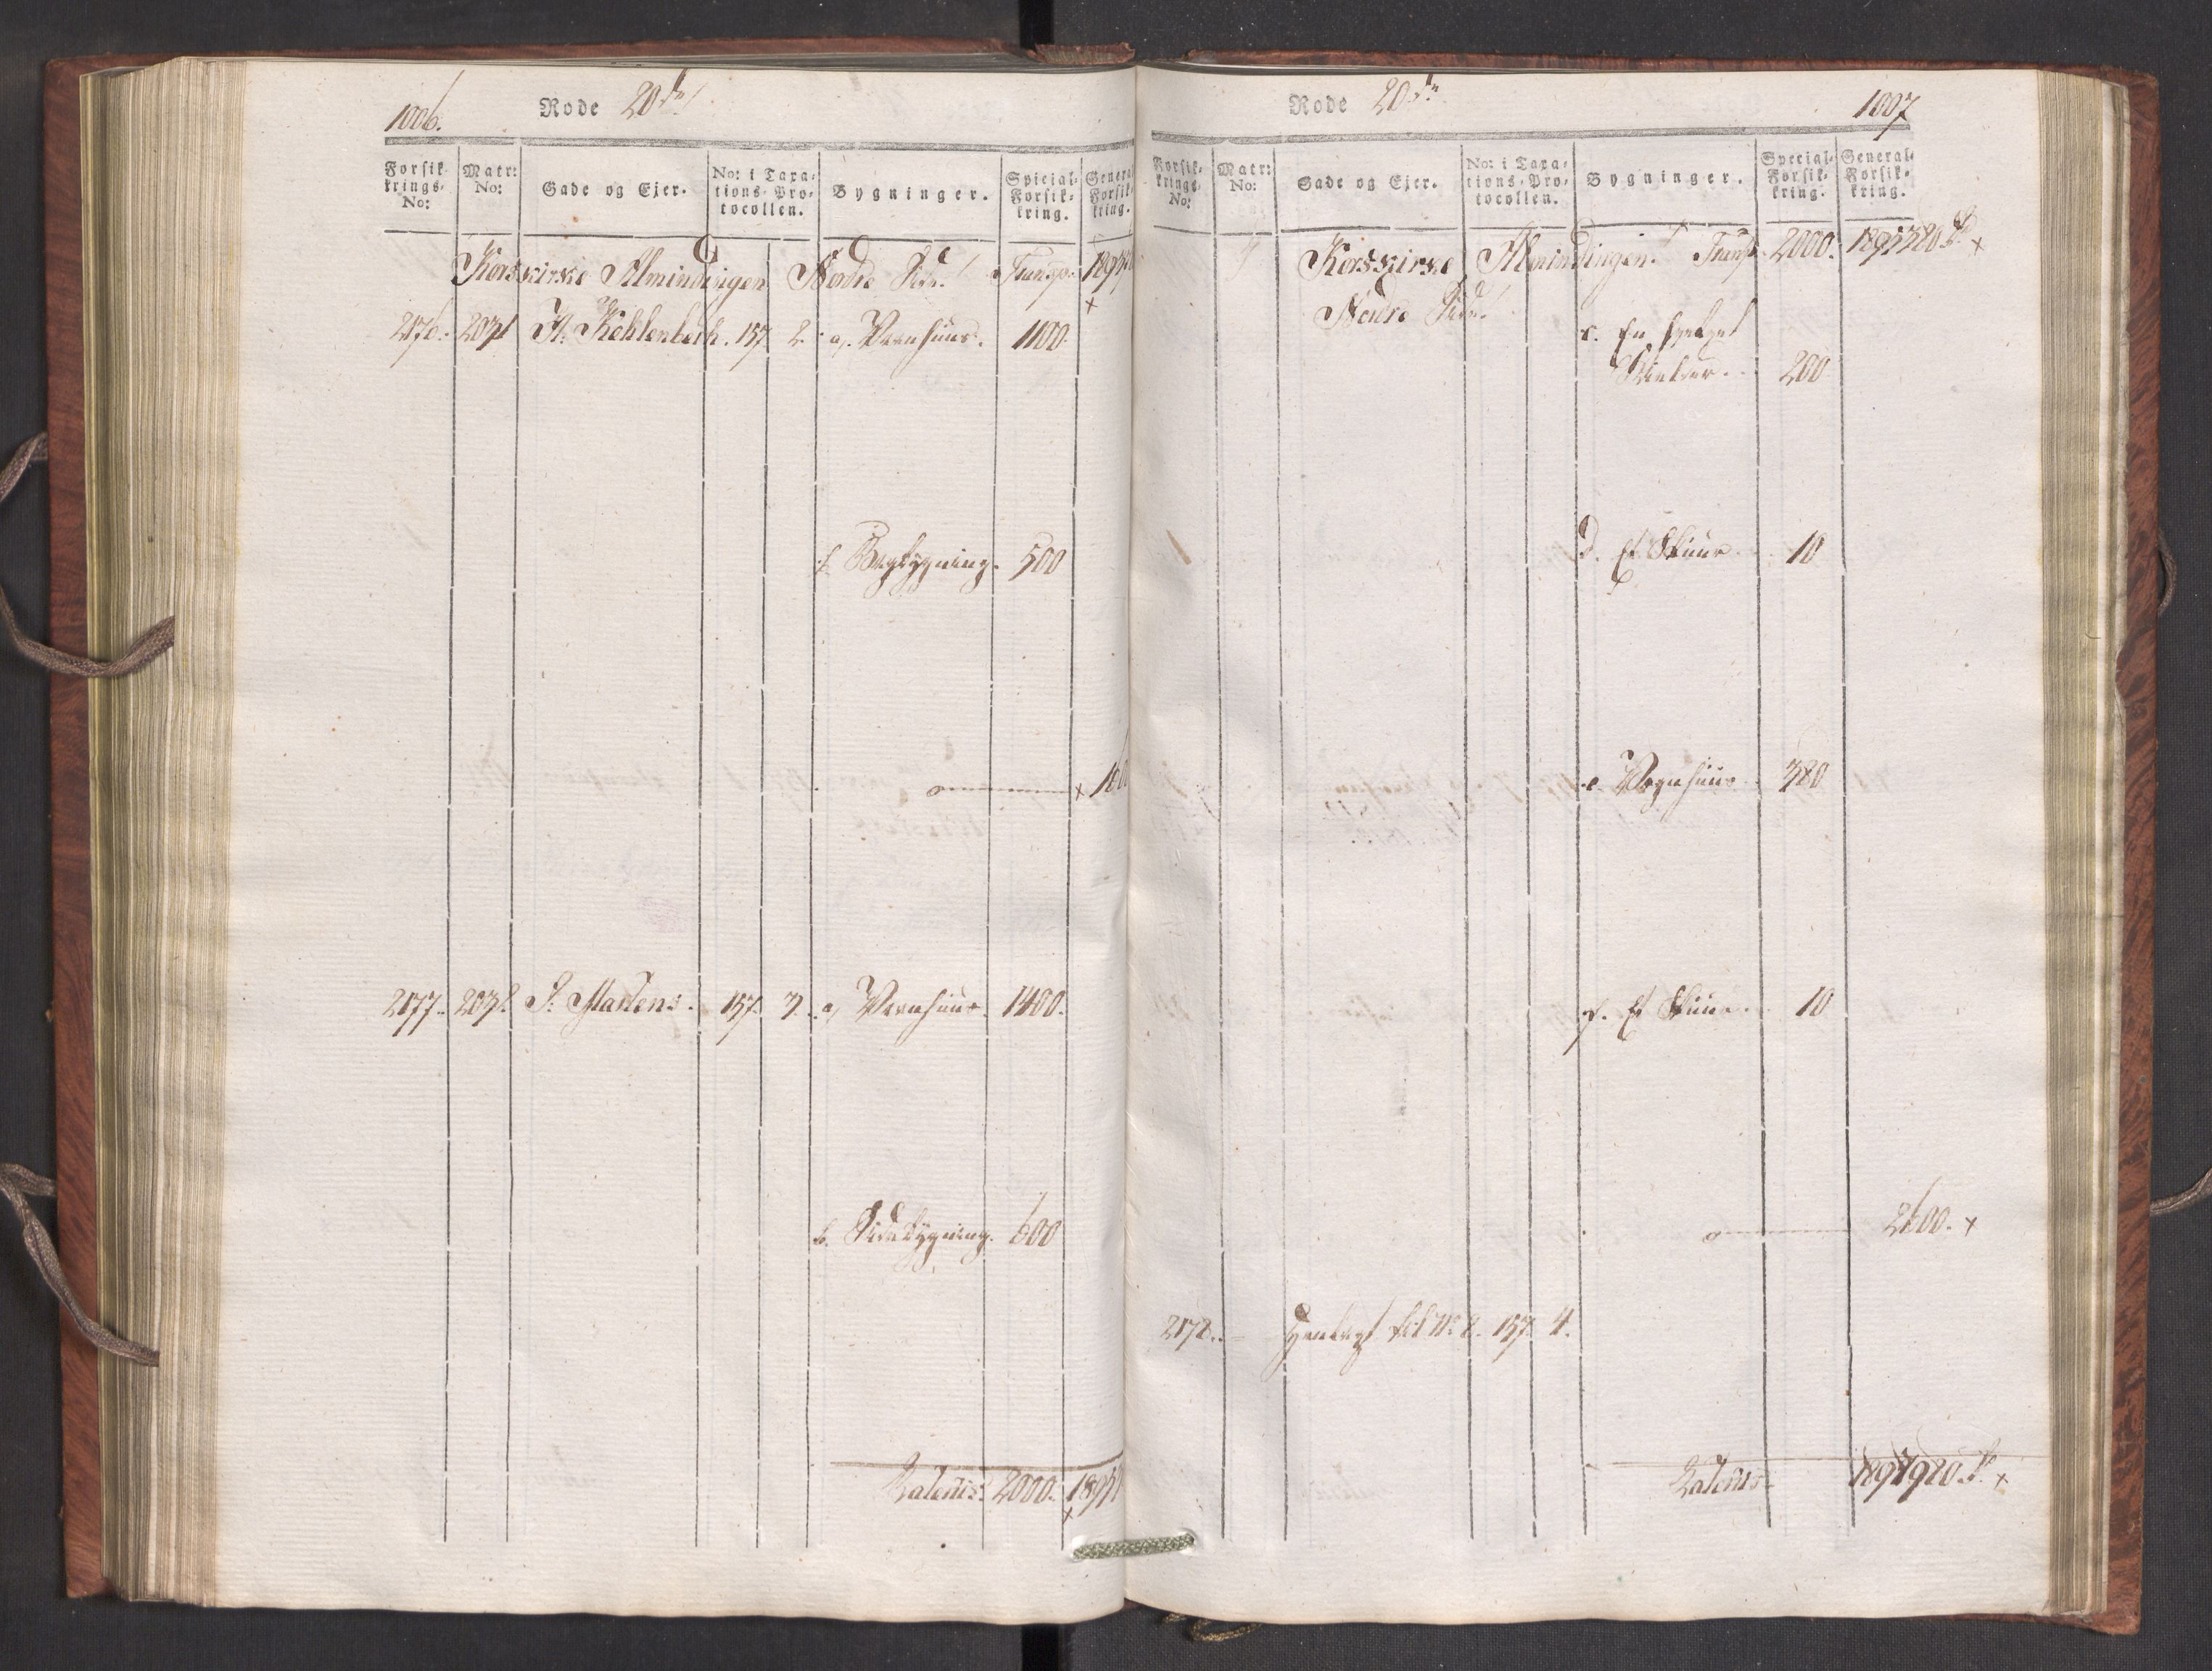 1006.
Rode 20de
Forsik-
krings-
No:
Matr:
No:
Gade og Ejer.
No: i Taxa-
tions-Pro-
tocollen.
Bygninger.
Spicial-
Forsik-
kring.
General
Forsik-
kring.
Korskirke Almindingen Nordre Side. Transp.
2176. 2031 H. Kohlenbech. 157 2. a. Vaanhuus. 1100.
b. Bagbygning. 500
2177. 2032 S. Martens. 157. 3. a, Vaanhuus. 1400.
b. Sidebygning. 600
Lateris. 2000.
Rode 20de
1007
Forsik-
krings-
No:
Matr:
No:
Gade og Ejer.
No: i Taxa-
tions-Pro-
tocollen.
Bygninger.
Special-
Forsik-
kring.
General-
Forsik-
kring.
Korskirke Almindingen. Transp. 2000. 1895380
Nordre Side.
c. En
Kielder. 200
d. Et Skuur. 10
e. Vaanhuus. 380
f. Et Skuur. 10
2600.
2178. Henlagt til No 2. 157. 4.
Lateris 1897980.